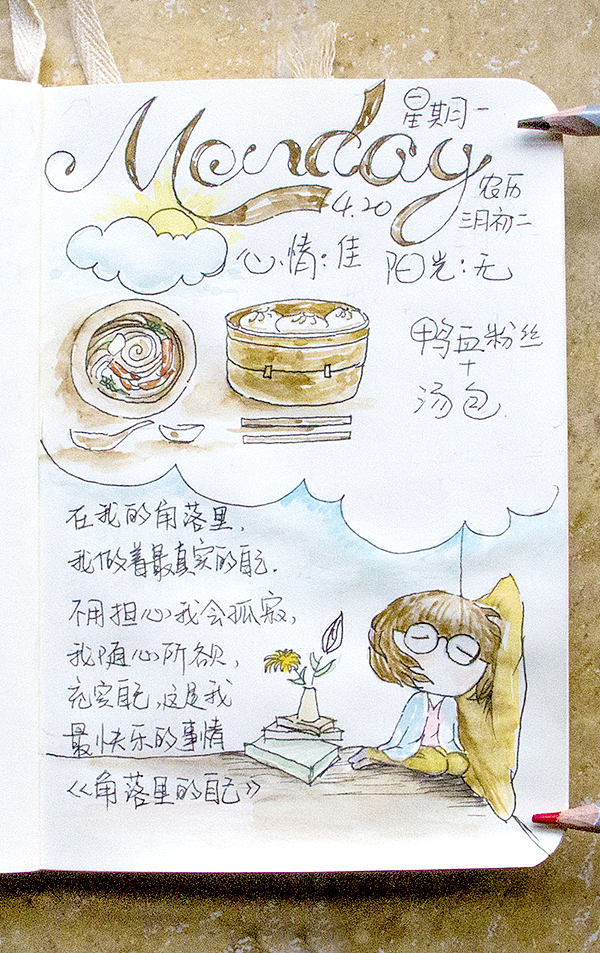 星期一
Monday
4.20
农历
三月初二
心情:佳
阳光:无
鸭血粉丝
+
汤包
在我的角落里,
我做着最真实的自己.
不用担心我会孤寂,
我随心所欲,
充实自己,这是我
最快乐的事情
《角落里的自己》